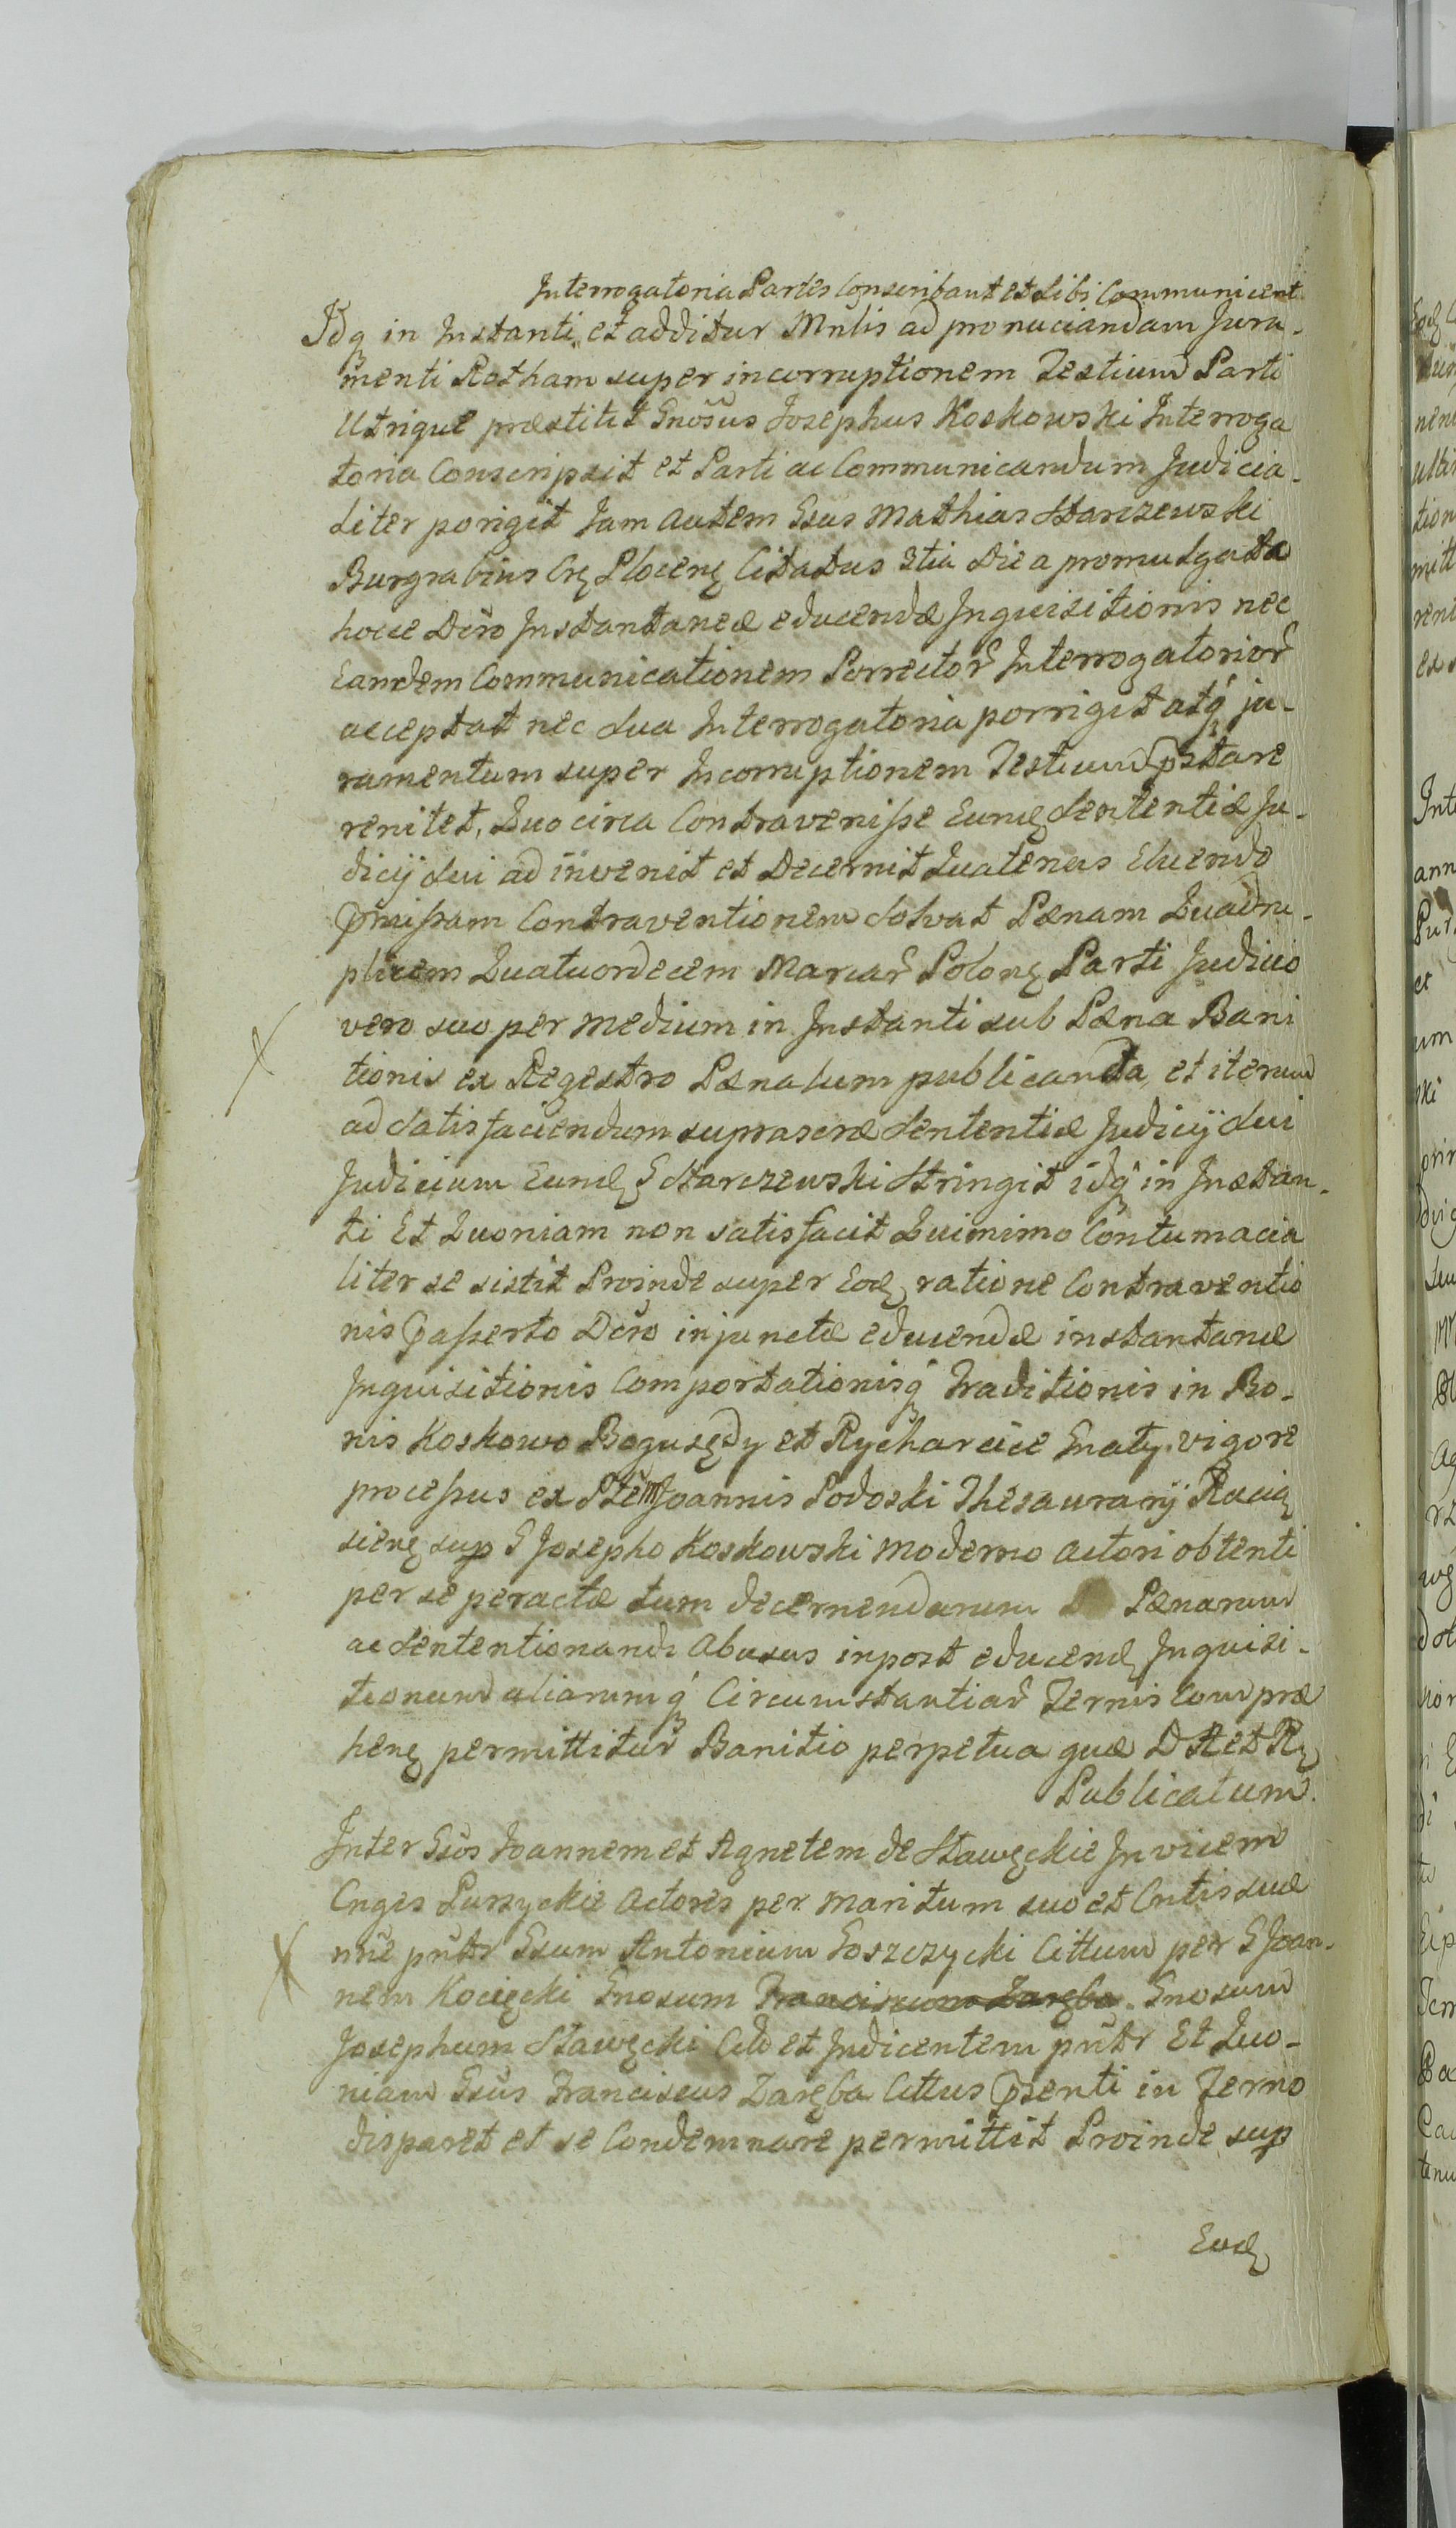 Interrogatoria Partes Conscribant et Sibi Communicent
Idq in Instanti, et additur Mnlis ad pronuciandam Jura-
menti Rotham super incorruptionem Testium Parti
Utrique præstitit Gnosus Josephus Koskowski Interroga
toria Conscripsit et Parti ac Communicandum Judicia-
liter porigit Jam autem Gsus Mathias Starczewski
Burgrabius Crę Plocenę Citatus 3tia Die a promulgata
hocce Dčro Instantaneæ educendæ Inquisitionis nec
Eandem Communicationem Porrector Interrogatorior
acceptat nec sua Interrogatoria porrigit atq ju-
ramentum super Incorruptionem Testium Pstare
renitet, Quo circa Contravenisse Eundę Sententiæ Ju-
dicij sui ad invenit et Decernit Quatenus Eluendo
Pmissam Contraventionem Solvat Pænam Quadru-
plicem Quatuordecem Marcar Polonę Parti Judicio
vero suo per medium in Instanti sub Pæna Bani
tionis ex Regestro Pænalium publicanda, et iterum
ad Satisfaciendum suprascræ Sententiæ Judicij sui
Judicium Eundę G Starczewski Stringit idq in Instan-
ti Et Quoniam non satisfacit Quinimo Contumacia
liter se sistit Proinde super Eodę ratione Contraventio
nis Passerto Dčro injunctæ educendæ instantaneæ
Inquisitionis Comportationisq Traditionis in Bo-
nis Koskowo Bogusędy et Rycharcice Gnaty vigore
processus ex Pte M Joannis Podoski Thesaurarij Racią
sienę sup G Josepho Koskowski moderno actori obtenti
per se peractæ tum decernendarum Pænarum
ac Sententionandi Abusus inpost educendę Inquisi-
tionum aliarumq Circumstantiar Ternis Com præ
henę permittitur Banitio perpetua quæ D R et Rę
Publicatum.
Inter Gsos Joannem et Agnetem de Stawęckie Invicem
Cnges Puszyckie Actores per maritum suo et Cntis suæ
nne pnter Gsum Antonium Goszczycki Cittum per G Joan-
nem Kocięcki Gnosum Franciszum Zaręba Gnosum
Josephum Stawęcki Citt et Indicentem pnter Et Quo-
niam Gsus Franciscus Zaręba Cittus Psenti in Terno
disparet et se Condemnare permittit Proinde sup
Eodę